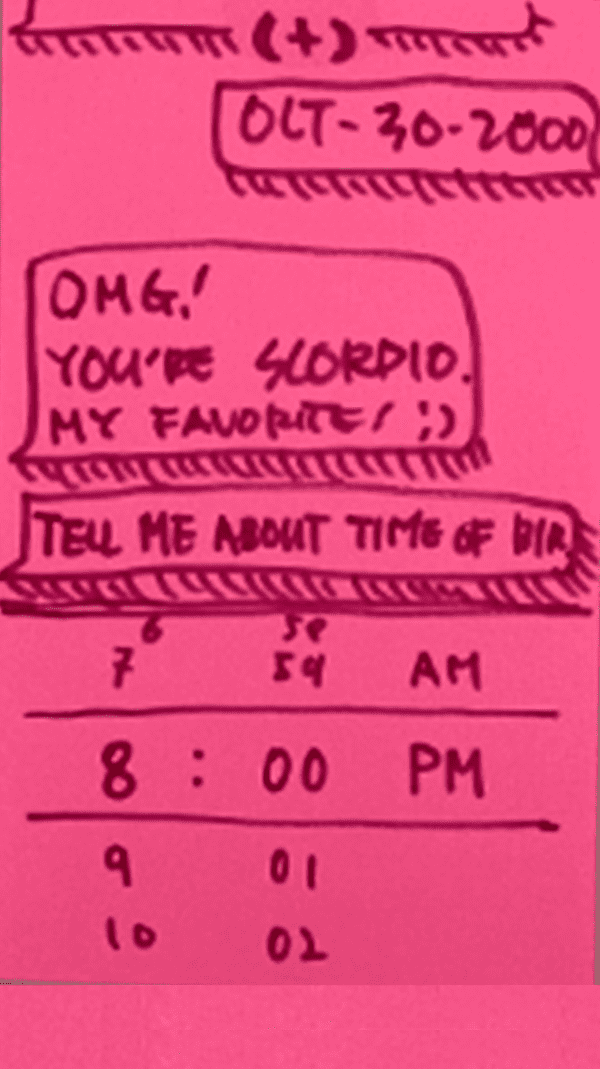 (+)
OCT-30-2000
OMG!
YOU'RE SCORPIO.
MY FAVORITE! ;)
TELL ME ABOUT TIME OF BIR
6 58
7 59 AM
8 : 00 PM
9 01
10 02